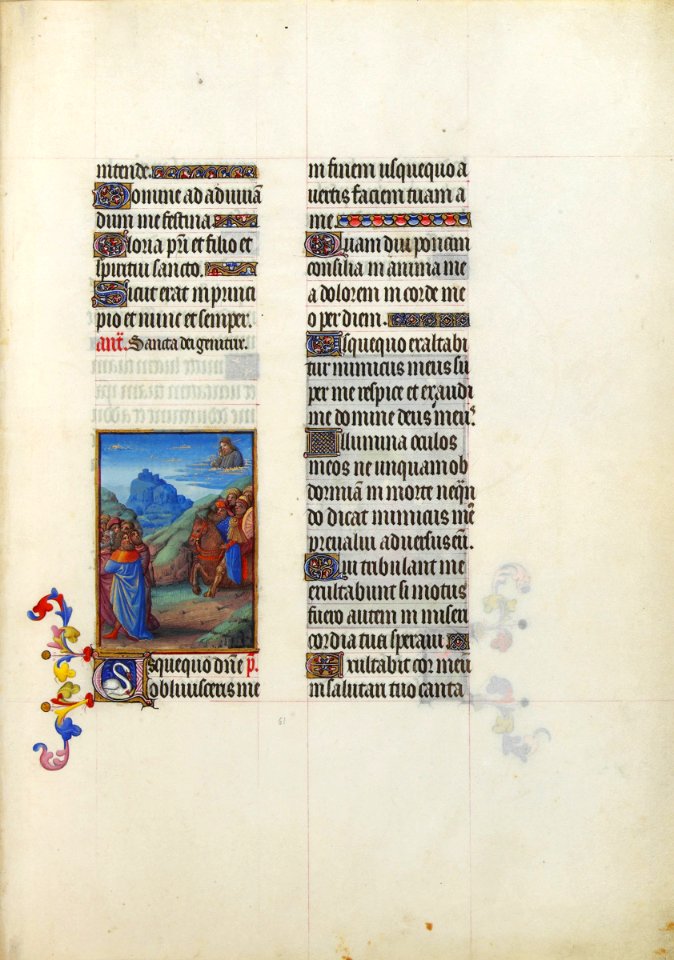 intende.
Domine ad adiuuan
dum me festina.
Gloria pri et filio et
spiritui sancto.
Sicut erat in princi
pio et nunc et semper.
ant. Sancta dei genitrix.
Usquequo dne p.
obliuisceris me
in finem usquequo a
uertis faciem tuam a
me.
Quam diu ponam
consilia in anima me
a dolorem in corde me
o per diem.
Usquequo exaltabi
tur inimicus meus su
per me respice et exaudi
me domine deus meus.
Illumina oculos
meos ne unquam ob
dormiam in morte nequn
do dicat inimicus meus
preualui aduersus eu.
Qui tribulant me
exultabunt si motus
fuero autem in miseri
cordia tua speraui.
Exultabit cor meu
in salutari tuo canta